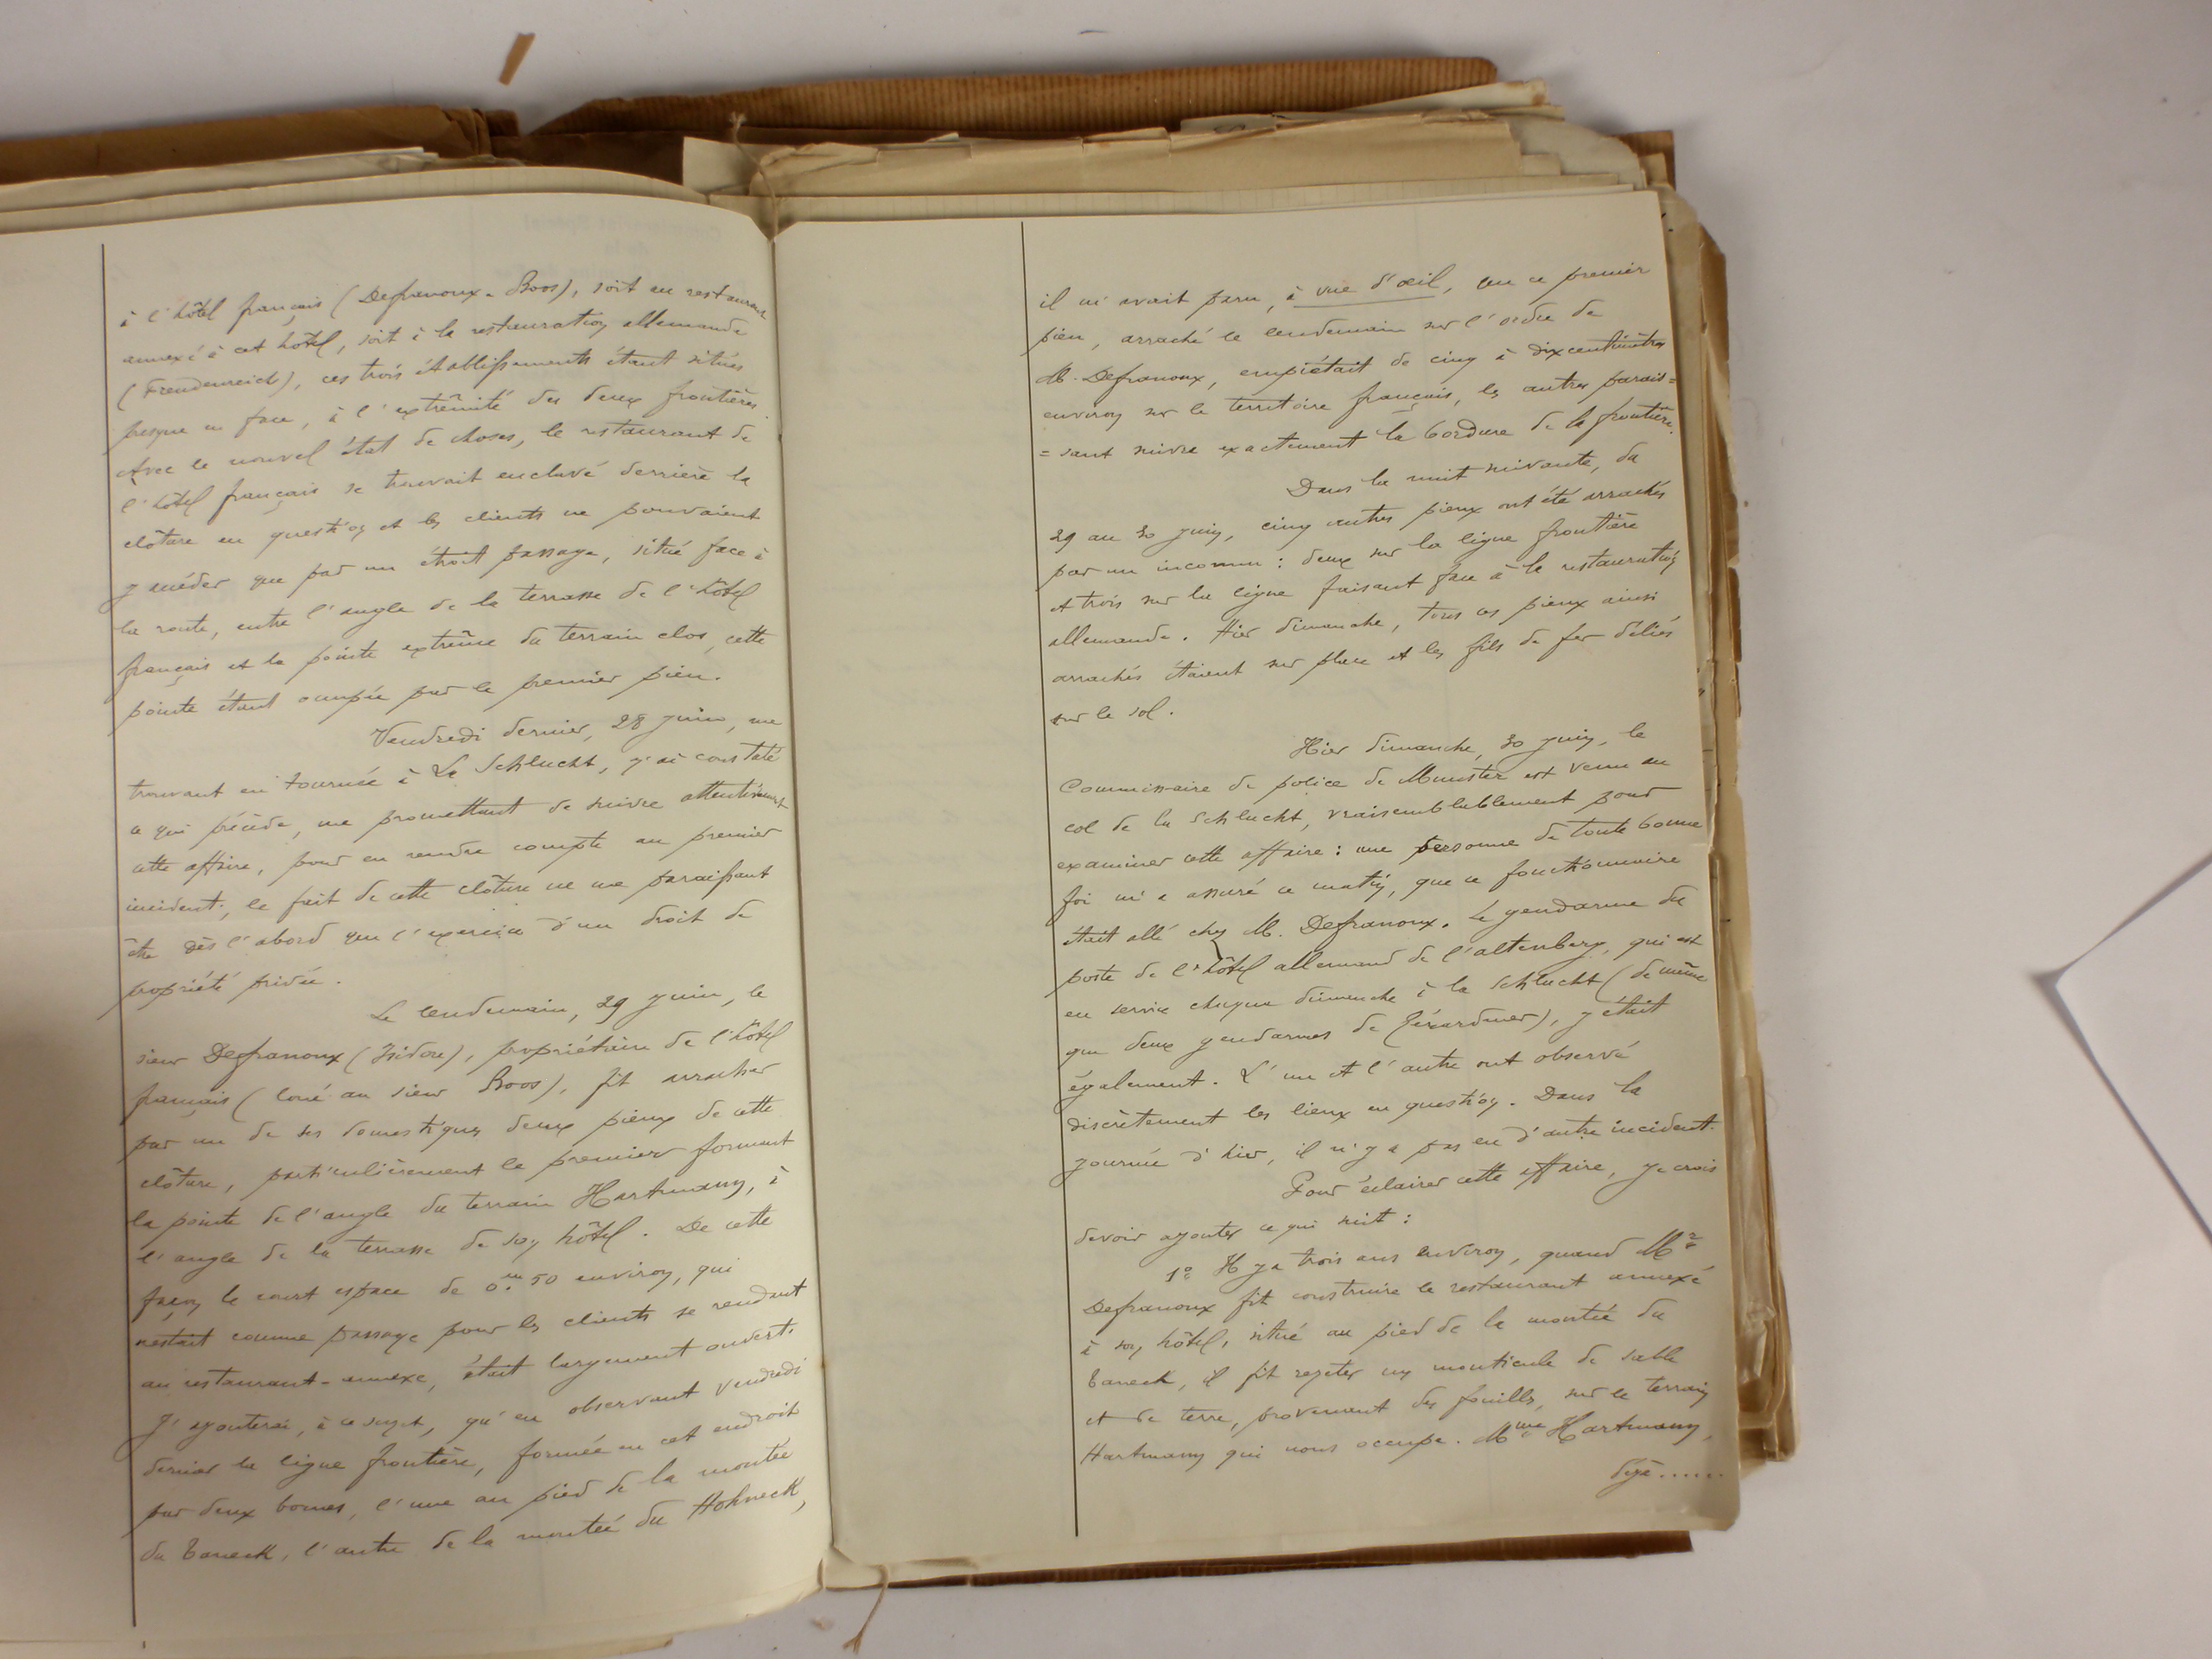 à l'hôtel français (Defranoux-Boos), soit au restaurant
annexé à cet hôtel, soit à la restauration allemande
(Freudenreich), ces trois établissements étant situés
presque en face, à l'extrêmité des deux frontières.
Avec le nouvel état de choses, le restaurant de
l'hôtel français se trouvait enclavé derrière la
clôture en question et les clients ne pouvaient
y accéder que par un étroit passage, situé face à
la route, entre l'angle de la terrasse de l'hôtel
français et la pointe extrême du terrain clos, cette
pointe étant occupée par le premier pieu.
Vendredi dernier, 28 juin, me
trouvant en tournée à La Schlucht, j'ai constaté
ce qui précède, me promettant de suivre attentivement
cette affaire, pour en rendre compte au premier
incident, le fait de cette clôture ne me paraissant
être dès l'abord que l'exercice d'un droit de
propriété privée.
Le lendemain, 29 juin, le
sieur Defranoux (Isidore), propriétaire de l'hôtel
français (loué au sieur Boos), fit arracher
par un de ses domestiques deux pieux de cette
clôture, particulièrement le premier formant
la pointe de l'angle du terrain Hartmann, à
l'angle de la terrasse de son hôtel. De cette
façon le court espace de 0.m50 environ, qui
restait comme passage pour les clients se rendant
au restaurant-annexe, était largement ouvert.
J'ajouterai, à ce sujet, qu'en observant vendredi
dernier la ligne frontière, formée en cet endroit
par deux bornes, l'une au pied de la montée
du Taneck, l'autre de la montée du Hohneck,
il m'avait paru, à vue d'œil, que ce premier
pieu, arraché le lendemain sur l'ordre de
M. Defranoux, empiétait de cinq à dix centimètres
environ sur le territoire français, les autres parais=
=sant suivre exactement la bordure de la frontière.
Dans la nuit suivante, du
29 au 30 juin, cinq autres pieux ont été arrachés
par un inconnu : deux sur la ligne frontière
et trois sur la ligne faisant face à la restauration
allemande. Hier dimanche, tous ces pieux ainsi
arrachés étaient sur place et les fils de fer déliés
sur le sol.
Hier dimanche, 30 juin, le
Commissaire de police de Munster est venu au
col de la Schlucht, vraisemblablement pour
examiner cette affaire : une personne de toute bonne
foi m'a assuré ce matin, que ce fonctionnaire
était allé chez M. Defranoux. Le gendarme du
poste de l'hôtel allemand de l'altenberg, qui est
en service chaque dimanche à la Schlucht (de même
que deux gendarmes de Gérardmer), y était
également. L'un et l'autre ont observé
discrètement les lieux en question. Dans la
journée d'hier, il n'y a pas eu d'autre incident.
Pour éclairer cette affaire, je crois
devoir ajouter ce qui suit :
1º Il y a trois ans environ, quand Mr
Defranoux fit construire le restaurant annexé
à son hôtel, situé au pied de la montée du
Taneck, il fit rejeter un monticule de sable
et de terre, provenant des fouilles, sur le terrain
Hartmann qui nous occupe. Mme Hartmann,
déjà......